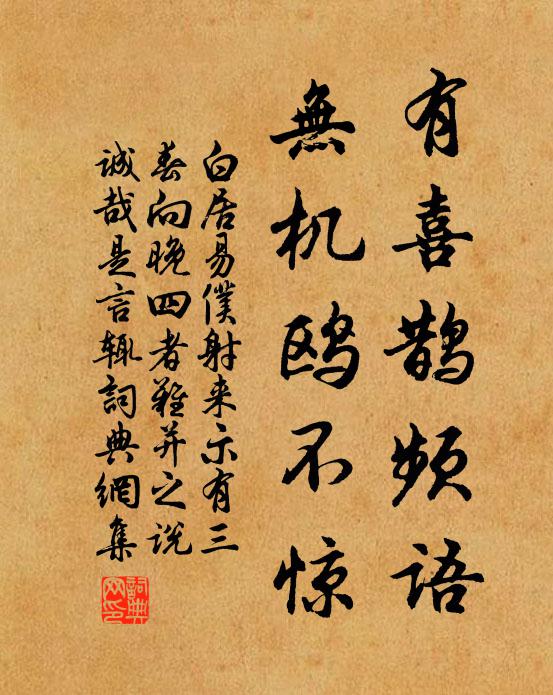 有喜鹊频语
無机鸥不惊
白居易僕射来示有三
春向晚四者难并之说
诚哉是言辄詞典網集
詞典网印